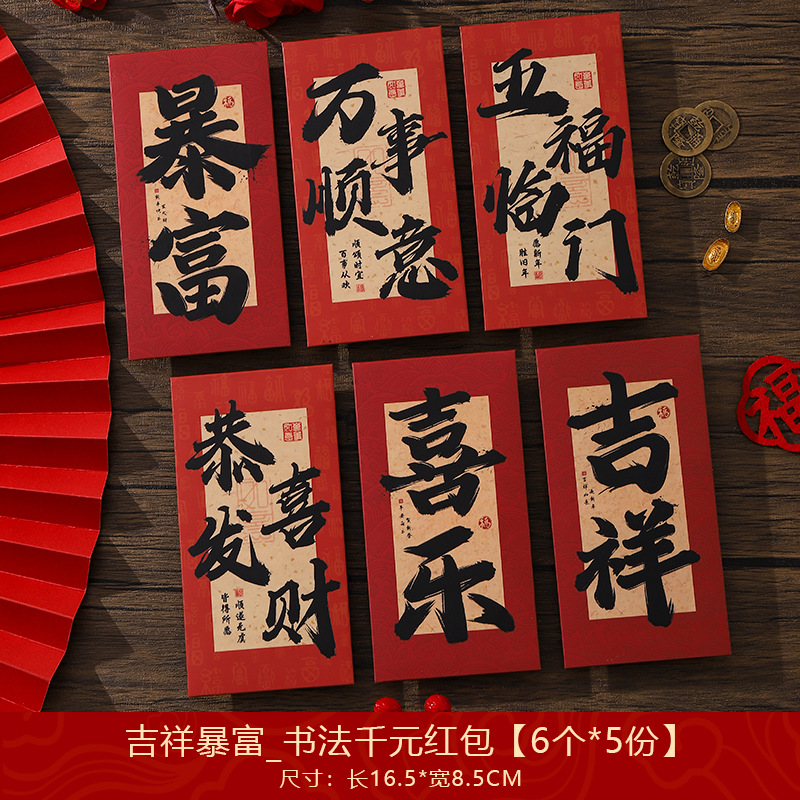 暴富
万事
顺意
顺颂时宜
百事从欢
五福
临门
愿新年
胜旧年
恭喜
发财
顺遂无虞
皆得所愿
喜乐
吉祥
福
吉祥暴富_书法千元红包【6个*5份】
尺寸：长16.5*宽8.5CM